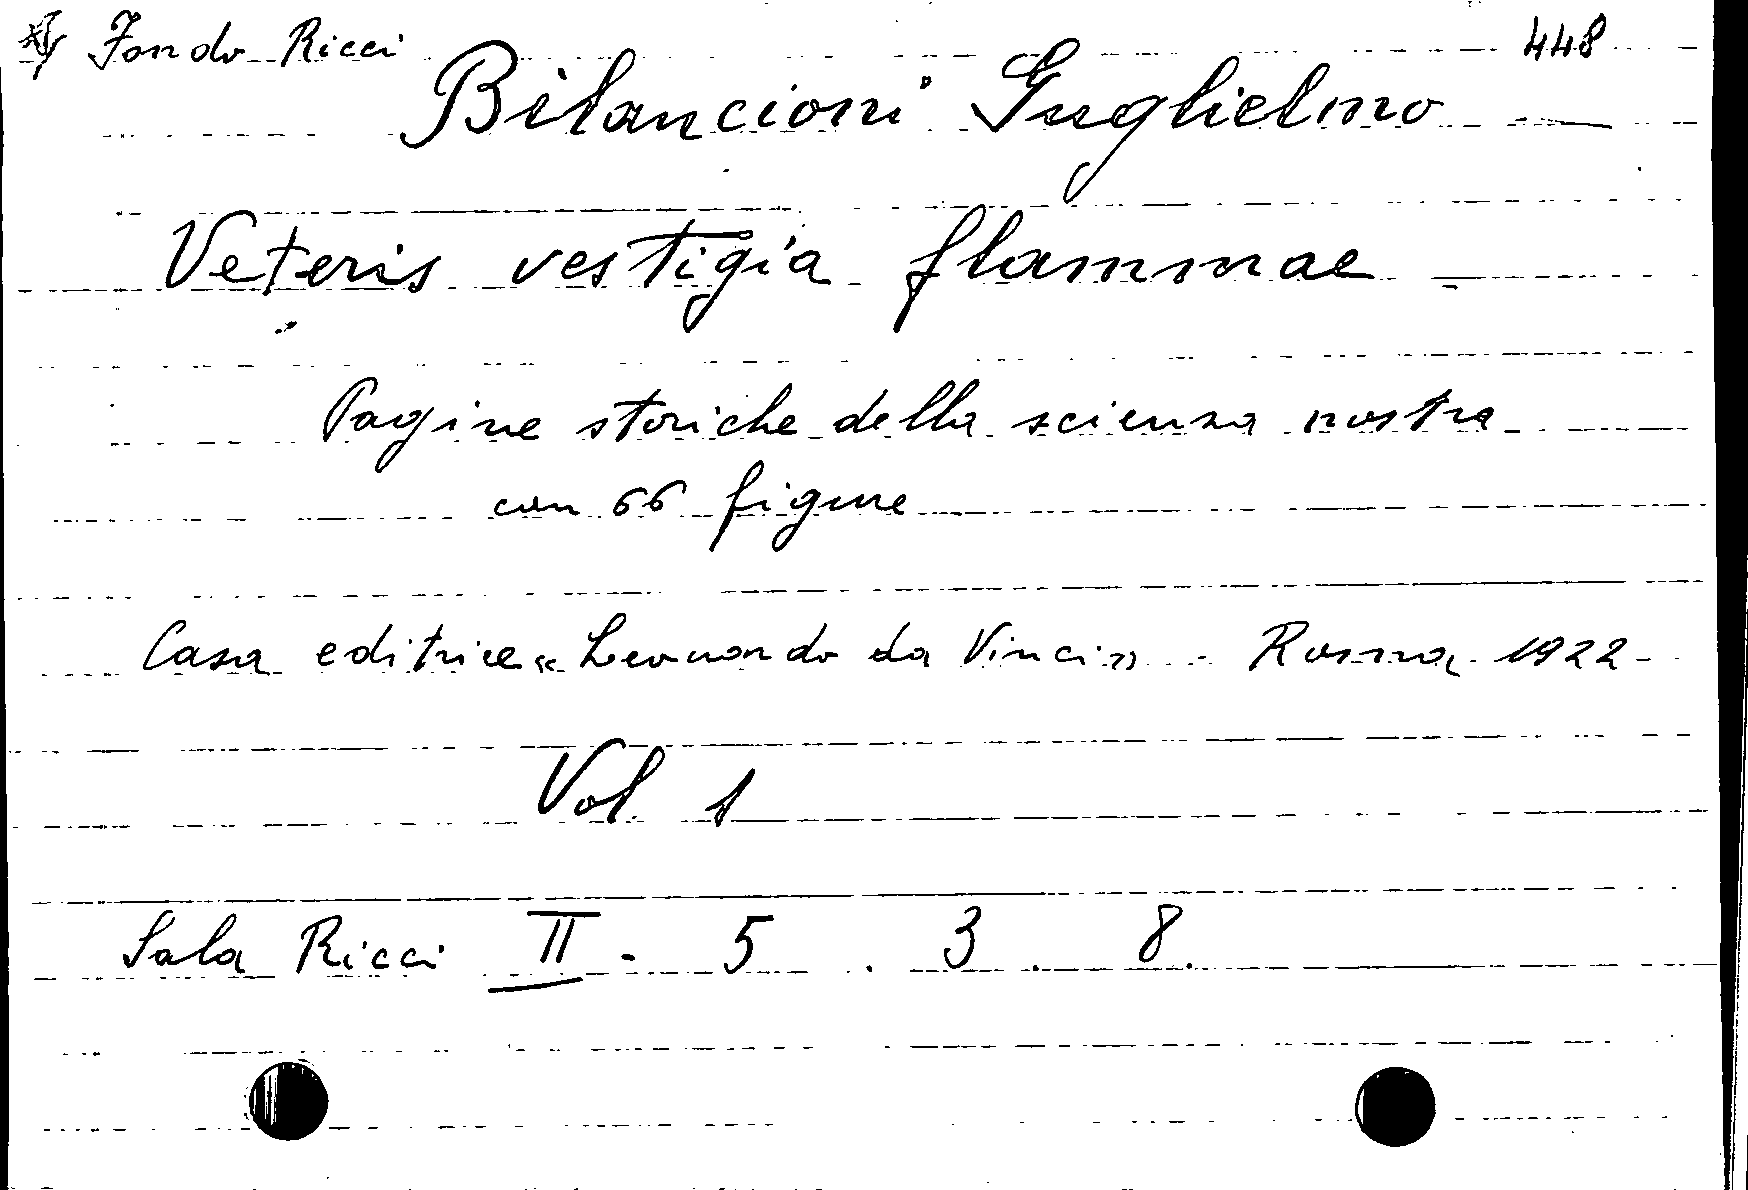 Fondo Ricci 448
Bilancioni Guglielmo
Veteris vestigia flammae
Pagine storiche della scienza nostra
con 66 figure
Casa editrice «Leonardo da Vinci» - Roma 1922
Vol. 1
Sala Ricci II - 5 . 3 . 8.